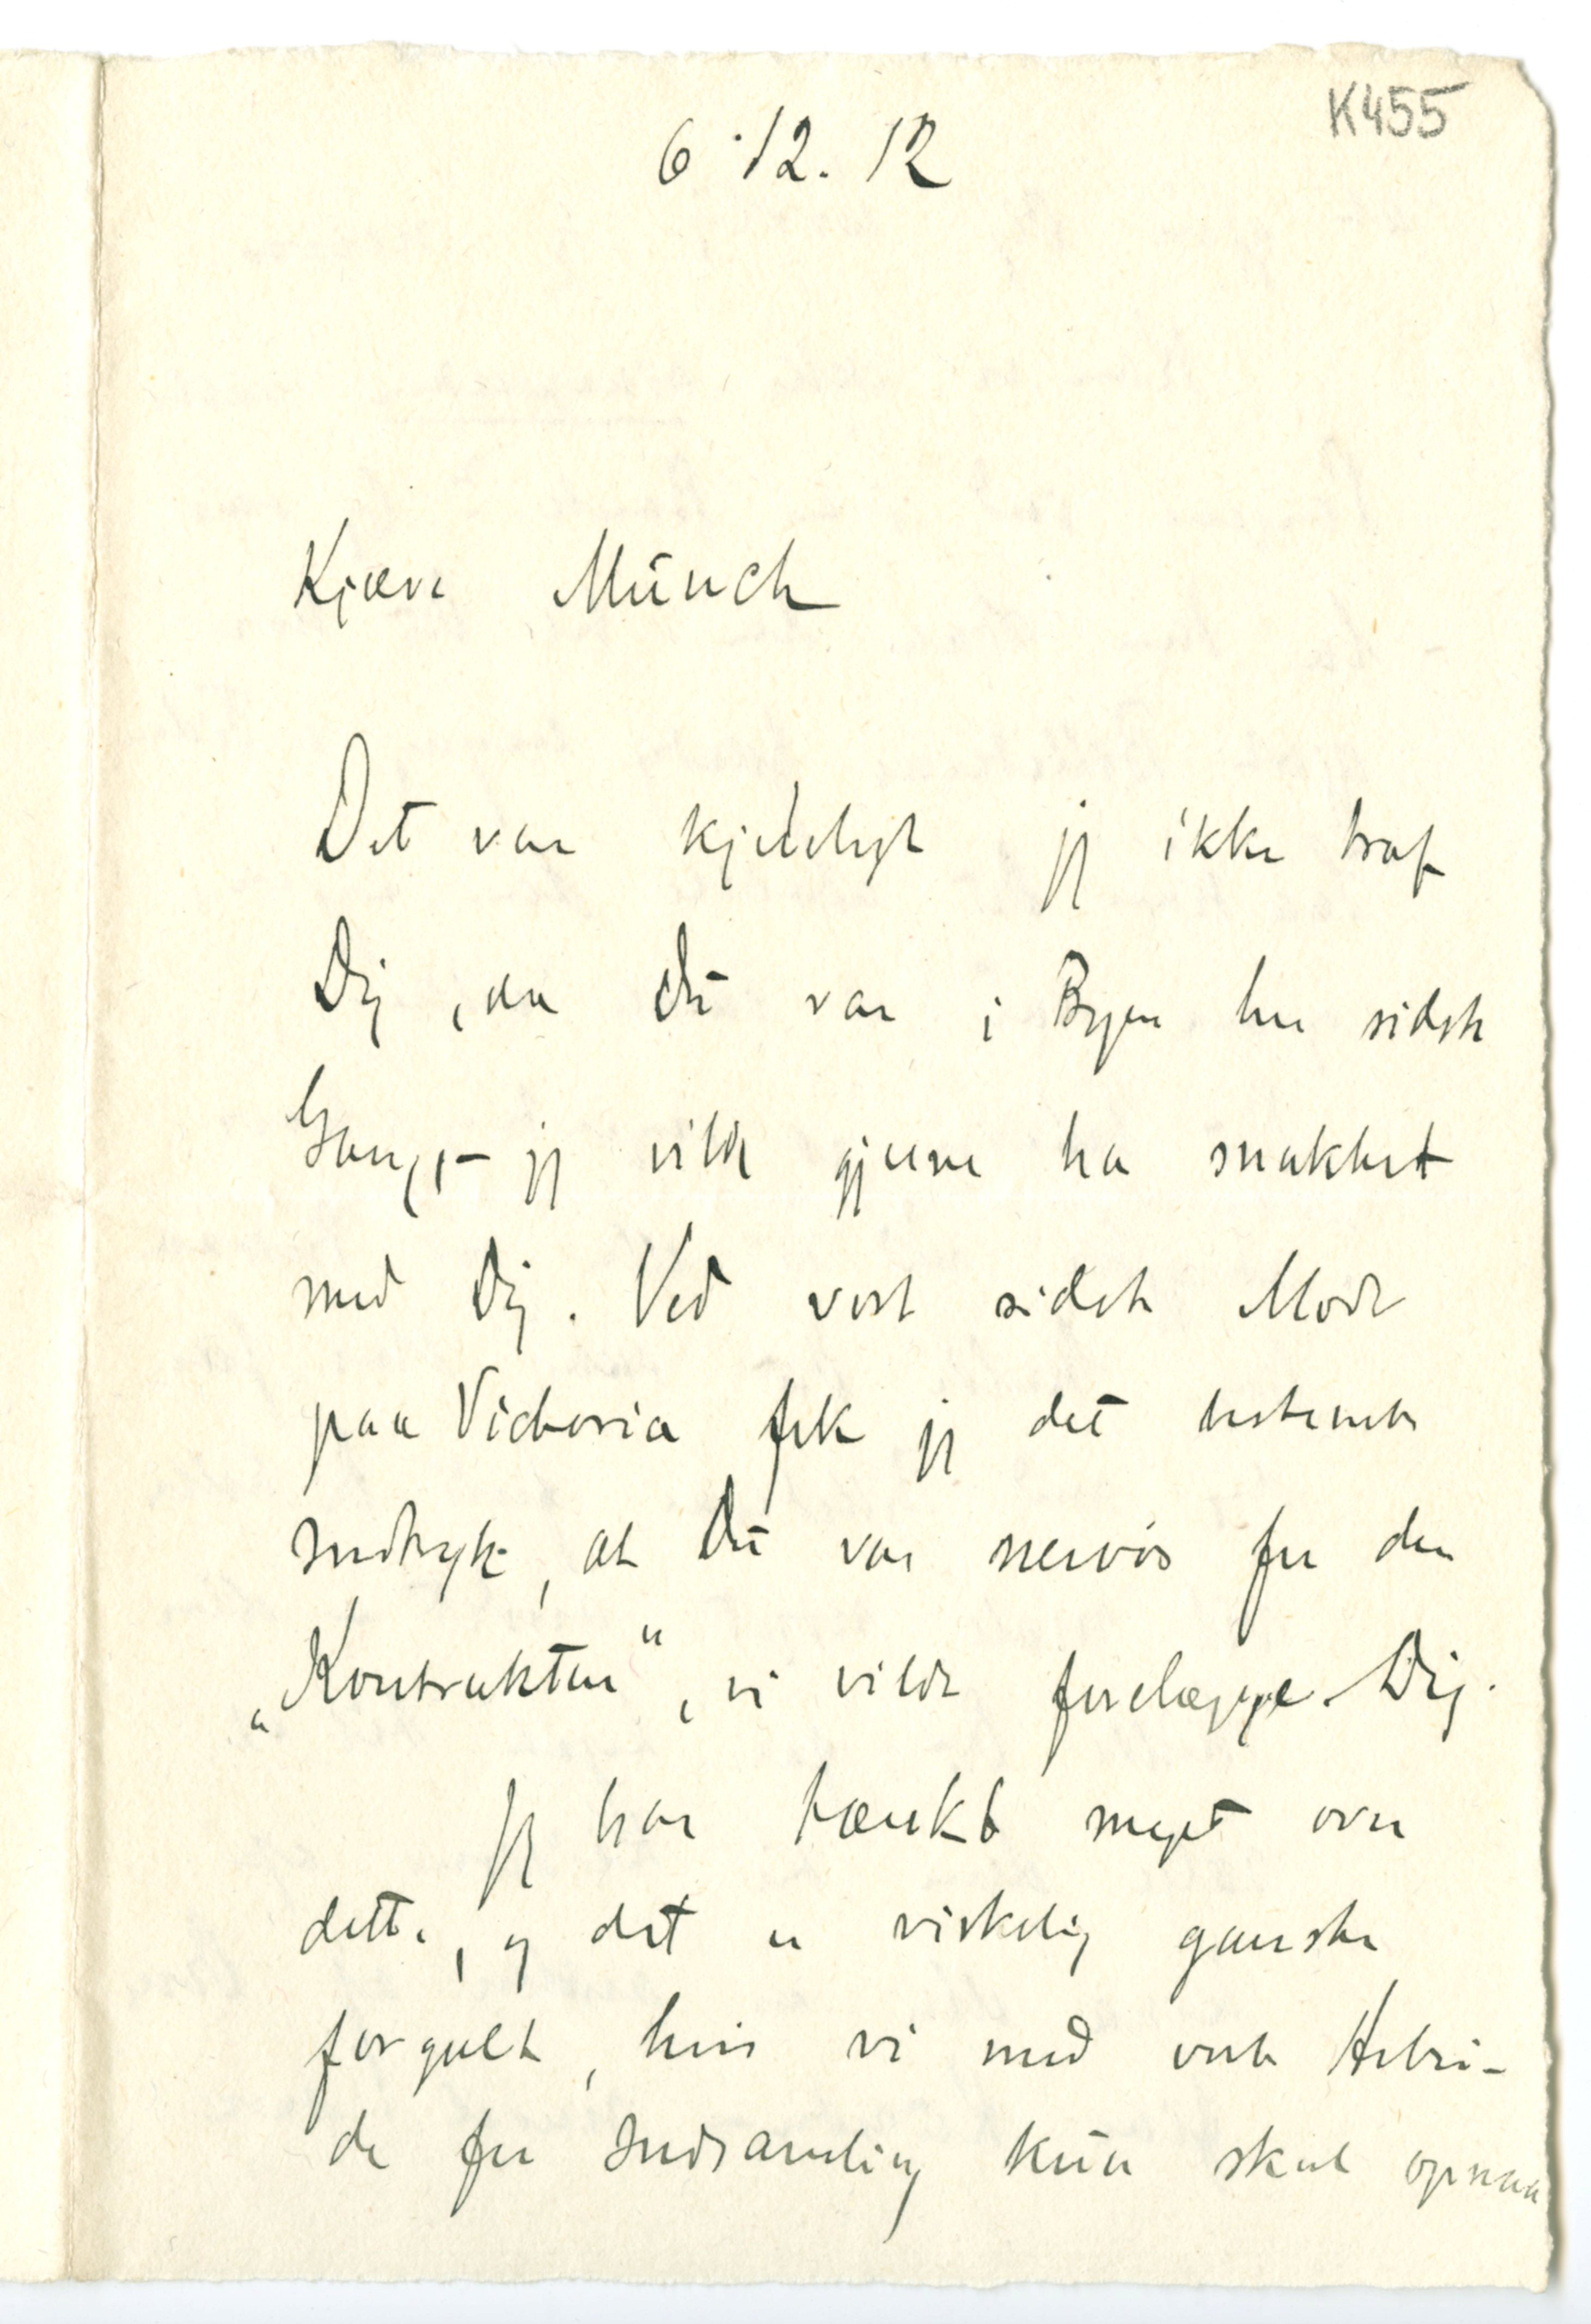 K455
6.12.12
Kjære Münch
Det var kjedeligt jeg ikke traf
Dig, da Du var i Byen her sidste
Gang,- jeg vilde gjerne ha snakket
med Dig. Ved vort sidste Møde
paa Victoria fik jeg det bestemte
Indtryk, at Du var nervøs for den
„Kontrakten“, vi vilde forelægge Dig.
Jeg har tænkt meget over
dette, og det er virkelig ganske
forgalt, hvis vi med vort Arbei-
de for Indsamling kun skal opnaa